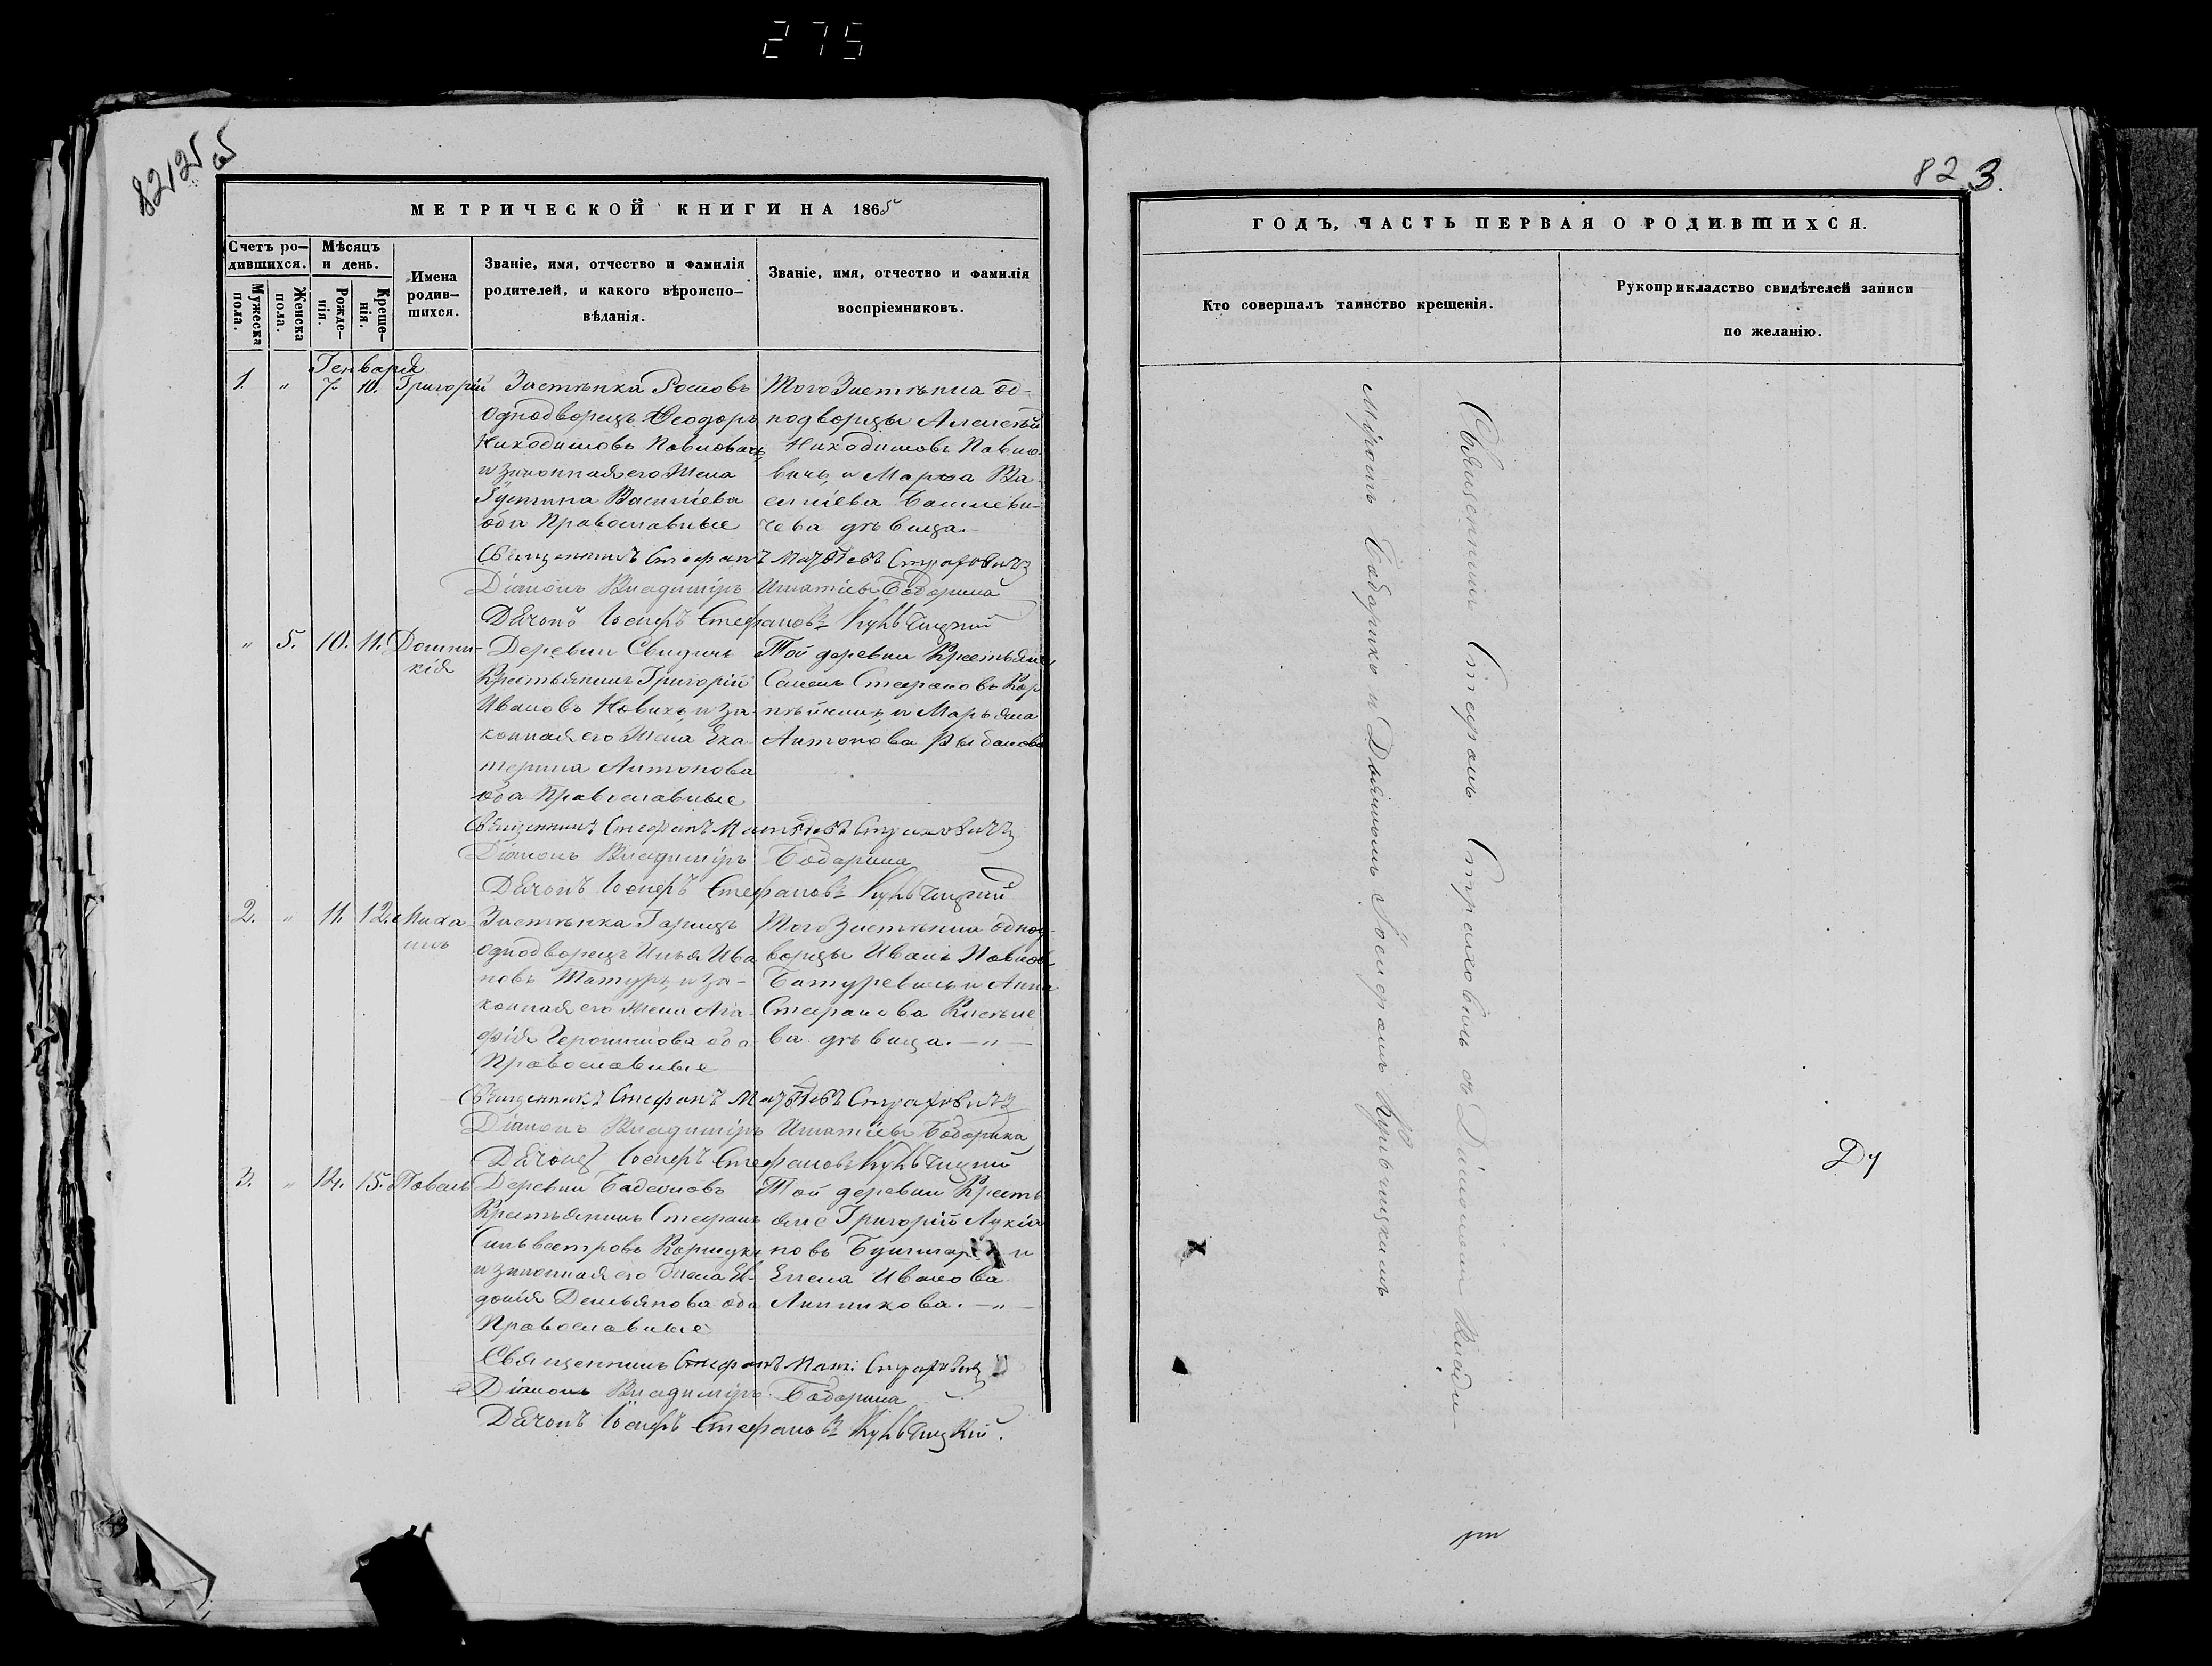 275
82125
МЕТРИЧЕСКОЙ КНИГИ НА 1865
Счетъ ро-
дившихся.
Мѣсяцъ
и день.
Имена
родив-
шихся.
Званіе, имя, отчество и фамилія
родителей, и какого вѣроиспо-
вѣданія.
Званіе, имя, отчество и фамилія
воспріемниковъ.
Мужеска
пола.
Женска
пола.
Рожде-
нія.
Креще-
нія.
Генваря
1. " 7. 10. Григорій
Застѣнка
Однодворецъ Ѳеодоръ
Никодимовъ Павловичъ
и законная его жена
Іустина Василіева
оба Православные
Того Застѣнка од-
нодворцы Алексѣй
Никодимовъ Павло-
вичъ, и Марѳа Ва-
силіева
дѣвица.
Священникъ Стефанъ Страховичъ
Діаконъ Владиміръ Игнатіевъ Бодарика
Дьячокъ Іосифъ Стефановъ Кульчицкій
" 5. 10. 11. Домни-
кія
Деревни
Крестьянинъ Григорій
Ивановъ Новикъ, и за-
конная его жена Ека-
терина Антонова
оба Православные
Той деревни Крестьяне
Стефановъ
и Марьяна
Антонова
Священникъ Стефанъ Страховичъ
Діаконъ Владиміръ Бодарика
Дьячокъ Іосифъ Стефановъ Кульчицкій
2. " 11. 12. Миха-
илъ
Застѣнка
однодворецъ Илья Ива-
новъ Татуръ, и за-
конная его жена Ага-
фія Іеронимова оба
Православные
Того Застѣнка однод-
ворцы Иванъ
Батуревичъ и Анна
Стефанова
ва дѣвица. — " —
Священникъ Стефанъ Страховичъ
Діаконъ Владиміръ Игнатіевъ Бодарика
Дьячокъ Іосифъ Стефановъ Кульчицкій
3. " 14. 15. Павелъ
Деревни
Крестьянинъ Стефанъ
Сильвестровъ
и законная его жена Ев-
докія Демьянова оба
Православные
Той деревни Кресть-
яне Григорій Лукія-
новъ и
Елена Иванова
Анникова. — " —
Священникъ Стефанъ Страховичъ
Діаконъ Владиміръ Бодарика
Дьячокъ Іосифъ Стефановъ Кульчицкій.
82 3.
ГОДЪ, ЧАСТЬ ПЕРВАЯ О РОДИВШИХСЯ.
Кто совершалъ таинство крещенія.
Рукоприкладство свидѣтелей записи
по желанію.
Священникъ Стефанъ Страховичъ съ Діакономъ Влади-
міромъ Бодарико и Дьячкомъ Іосифомъ Кульчицкимъ